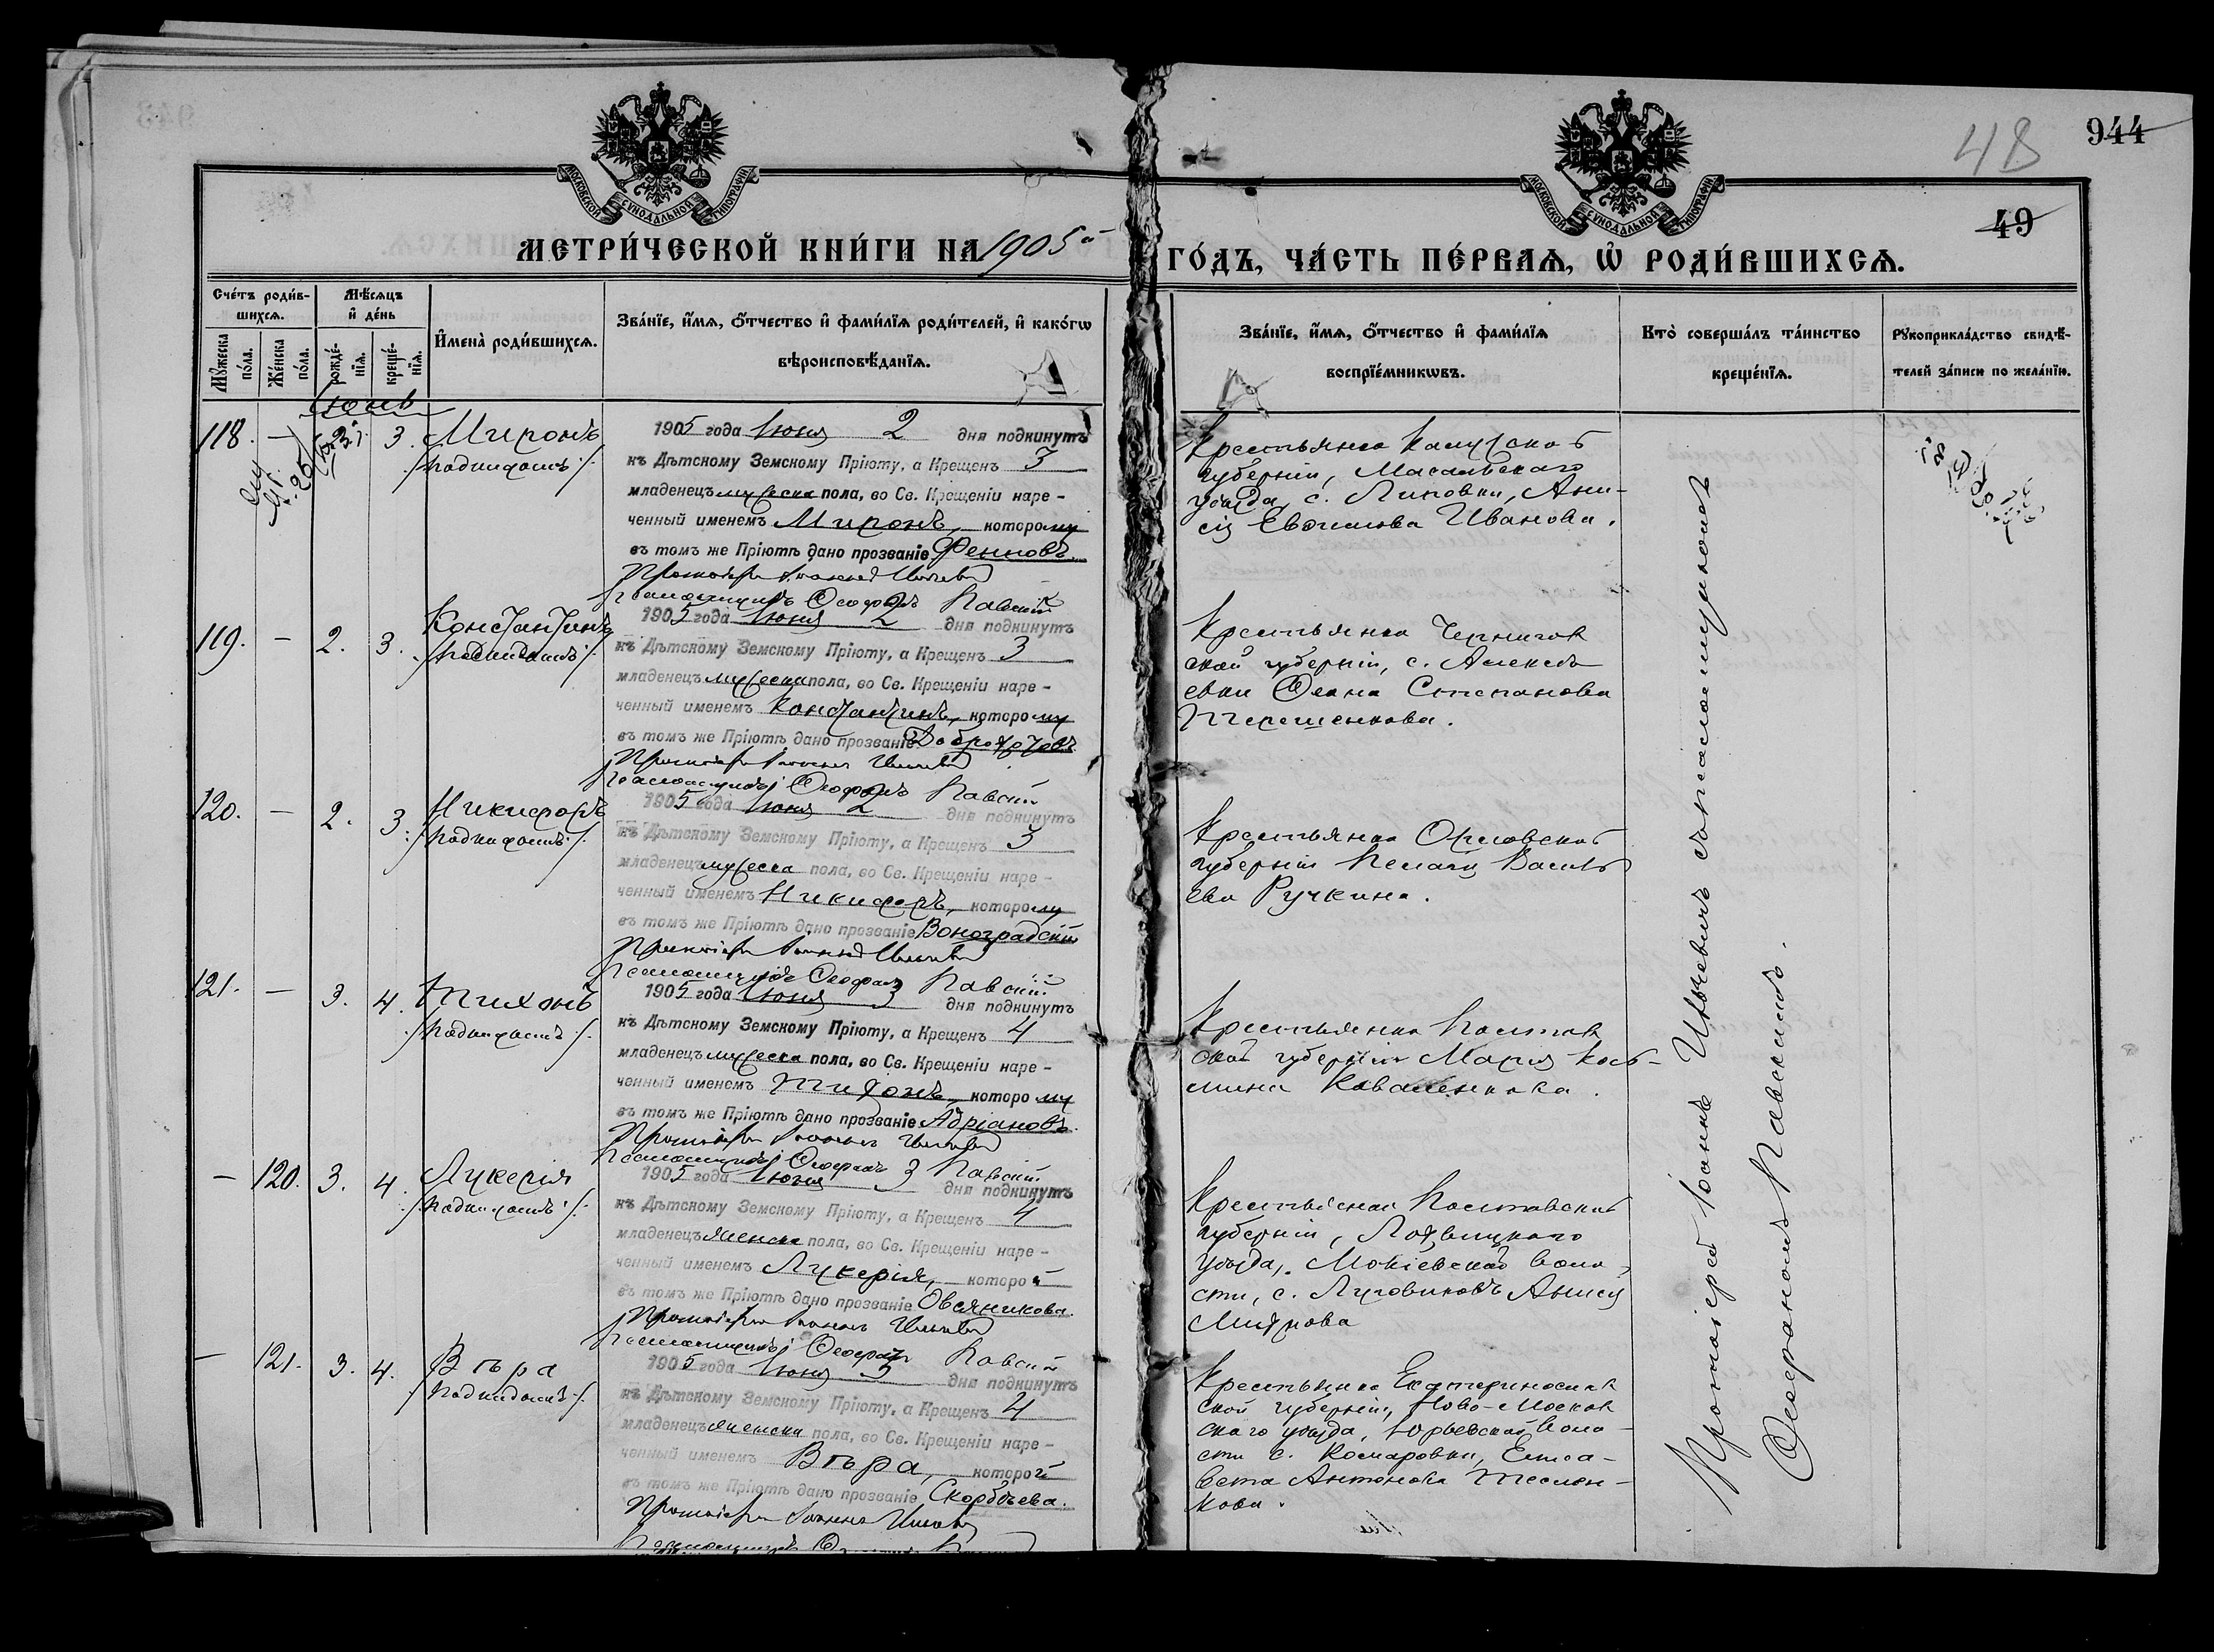 944
48
49
МОСКОВСКОЙ СѴНОДАЛЬНОЙ ТИПОГРАФІИ
МОСКОВСКОЙ СѴНОДАЛЬНОЙ ТИПОГРАФІИ
МЕТРИ́ЧЕСКОЙ КНИ́ГИ НА 1905й ГО́ДЪ, ЧА́СТЬ ПЕ́РВАѦ, Ѡ҆ РОДИ́ВШИХСѦ.
Сче́тъ роди́в-
шихсѧ.
Мꙋжеска по́ла.
Же́нска по́ла.
Мѣ́сѧцъ
и҆ де́нь
рожде́-
нїѧ.
креще́-
нїѧ.
И҆мена̀ роди́вшихсѧ.
Зва́нїе, и҆́мѧ, ѻ҆́тчество и҆ фами́лїѧ роди́телей, и҆ како́гѡ
вѣроисповѣ́данїѧ.
Зва́нїе, и҆́мѧ, ѻ҆́тчество и҆ фами́лїѧ
воспрїе́мникѡвъ.
Кто̀ соверша́лъ та́инство
креще́нїѧ.
Рꙋкоприкла́дство свидѣ́-
телей за́писи по жела́нїю.
Іюнь
118. — 2. 3. Миронъ
/подкидышъ/.
1905 года Іюня 2 дня подкинутъ
къ Дѣтскому Земскому Пріюту, а Крещенъ 3
младенецъ мужеска пола, во Св. Крещеніи наре-
ченный именемъ Миронъ, которому
въ томъ же Пріютѣ дано прозваніе
Протоіерей Іоаннъ
Псаломщикъ Ѳеофанъ Павскій
Крестьянка Калужской
губерніи, Масальскаго
уѣзда, с. Липовки, Ани-
сія Евфимова Иванова.
119. — 2. 3. Константинъ
/подкидышъ/.
1905 года Іюня 2 дня подкинутъ
къ Дѣтскому Земскому Пріюту, а Крещенъ 3
младенецъ мужеска пола, во Св. Крещеніи наре-
ченный именемъ Константинъ, которому
въ томъ же Пріютѣ дано прозваніе
Протоіерей Іоаннъ
Псаломщикъ Ѳеофанъ Павскій
Крестьянка Чернигов
ской губерніи, с. Алексѣ
евки Ѳекла Степанова
Терещенкова.
120. — 2. 3. Никифоръ
/подкидышъ/.
1905 года Іюня 2 дня подкинутъ
къ Дѣтскому Земскому Пріюту, а Крещенъ 3
младенецъ мужеска пола, во Св. Крещеніи наре-
ченный именемъ Никифоръ, которому
въ томъ же Пріютѣ дано прозваніе Воноградскій
Протоіерей Іоаннъ
Псаломщикъ Ѳеофанъ Павскій
Крестьянка Орловской
губерніи Пелагія Василь
ева Ручкина.
121. — 3. 4. Тихонъ
/подкидышъ/.
1905 года Іюня 3 дня подкинутъ
къ Дѣтскому Земскому Пріюту, а Крещенъ 4
младенецъ мужеска пола, во Св. Крещеніи наре-
ченный именемъ Тихонъ, которому
въ томъ же Пріютѣ дано прозваніе Адріановъ.
Протоіерей Іоаннъ
Псаломщикъ Ѳеофанъ Павскій
Крестьянка Полтав
ской губерніи Марія Кось-
мина Коваленкова.
— 120. 3. 4. Лукерія
/подкидышъ/.
1905 года Іюня 3 дня подкинутъ
къ Дѣтскому Земскому Пріюту, а Крещенъ 4
младенецъ женска пола, во Св. Крещеніи наре-
ченный именемъ Лукерія, которой
въ томъ же Пріютѣ дано прозваніе Овсяникова.
Протоіерей Іоаннъ
Псаломщикъ Ѳеофанъ Павскій
Крестьянка Полтавской
губерніи, Лохвицкаго
уѣзда, воло-
сти, с. Анисія
— 121. 3. 4. Вѣра
/подкидышъ/.
1905 года Іюня 3 дня подкинутъ
къ Дѣтскому Земскому Пріюту, а Крещенъ 4
младенецъ женска пола, во Св. Крещеніи наре-
ченный именемъ Вѣра, которой
въ томъ же Пріютѣ дано прозваніе
Протоіерей Іоаннъ
Крестьянка Екатеринослав
ской губерніи, Ново-Москов
скаго уѣзда, Юрьевской воло
сти с. Комаровки, Елиса-
вета Антонова
кова.
Протоіерей Іоаннъ Ильчевичъ съ псаломщикомъ
Ѳеофаномъ Павскимъ.